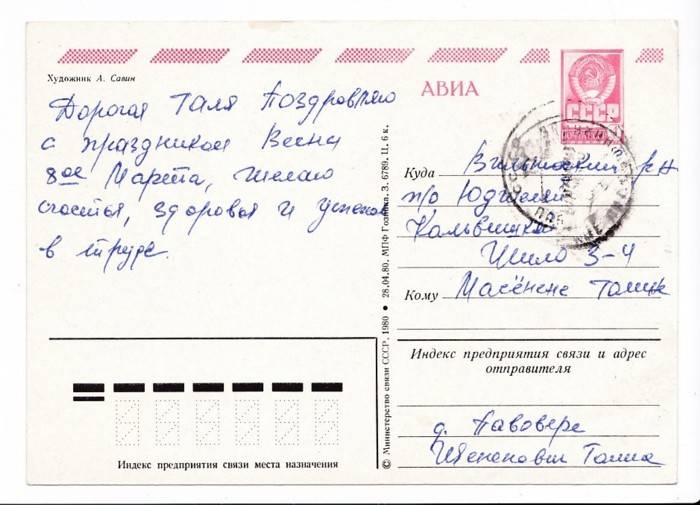 Художник А. Савин
АВИА
СССР
Дорогая Таля Поздравляю
с праздником Весны
8ое Марта, желаю
счастья, здоровья и успехов
в труде.
Куда Вильнюсский р-н
п/о Юдишки
Кальвишки
Шило 3-4
Кому
© Министерство связи СССР, 1980 • 28.04.80. МПФ Гознака. З. 6789. Ц. 6 к.
Индекс предприятия связи и адрес
отправителя
д. Павовере
Галина
Индекс предприятия связи места назначения